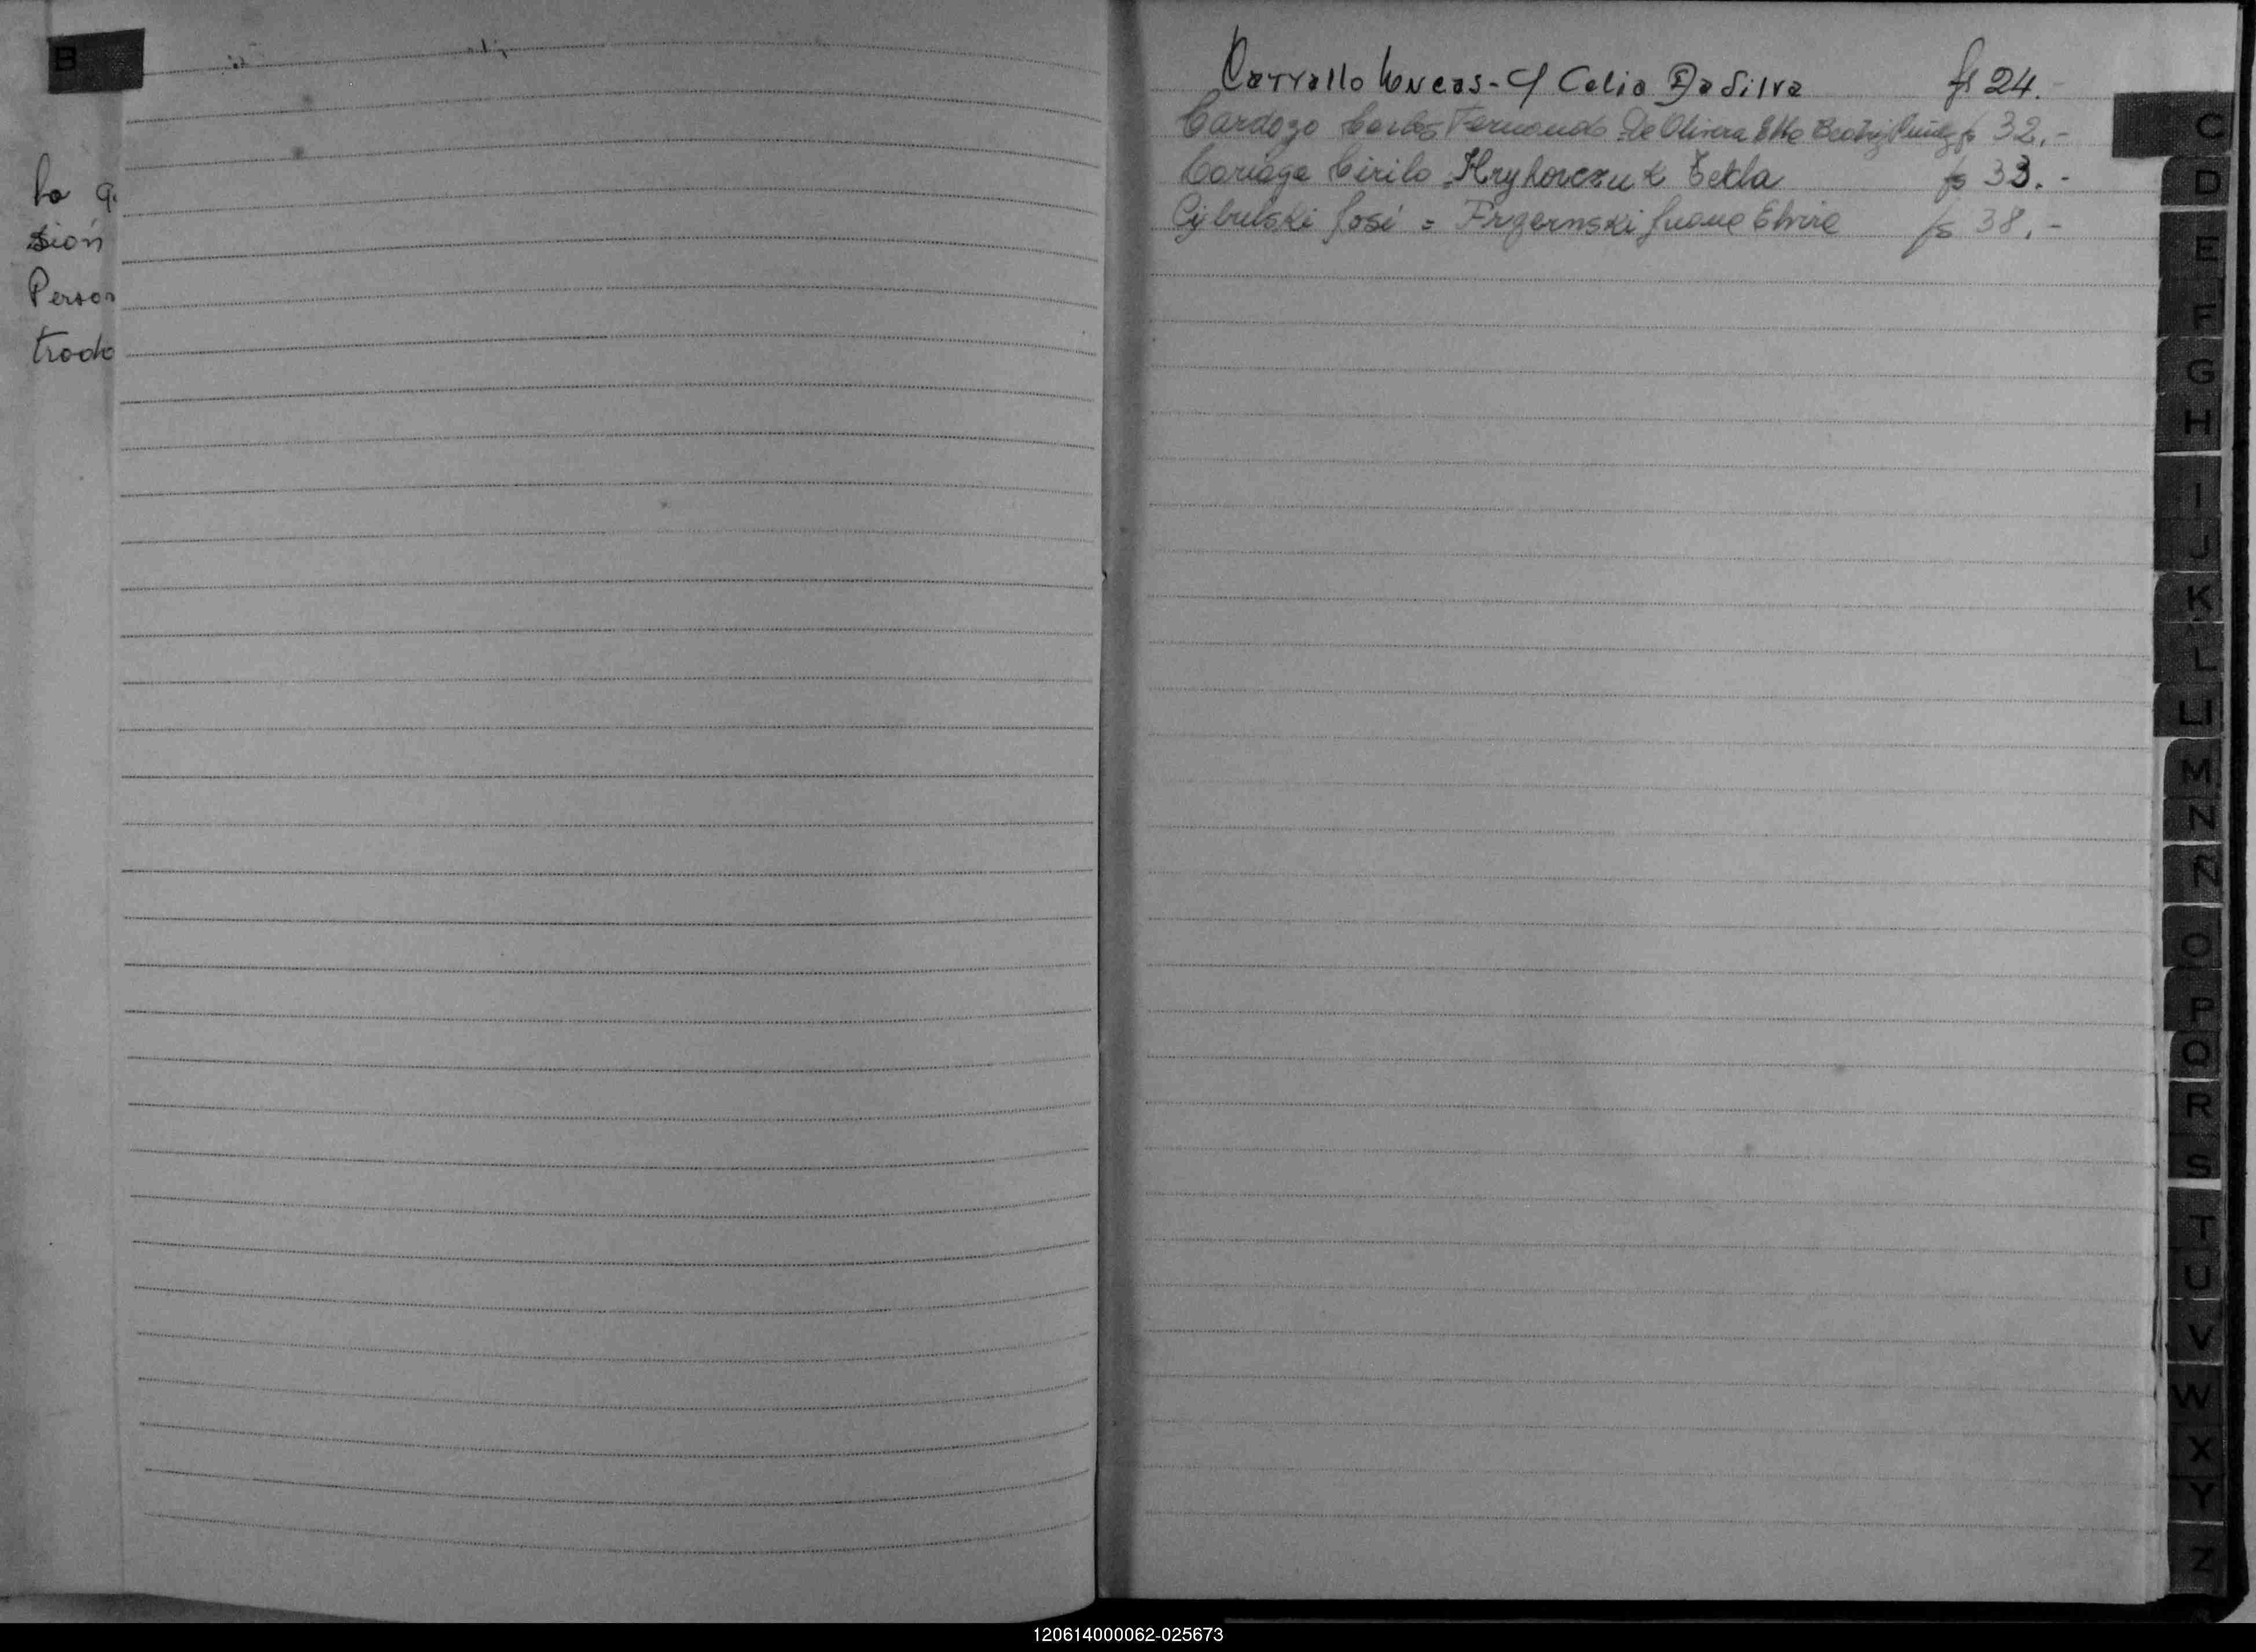 B
La q
sión
Person
trado
Carvallo Lucas - C/ Celia Da Silva fs 24.-
Cardozo Carlos Fernando De Olivera Beatriz fs 32.-
Cariaga Cirilo = Hryhorczuk Tekla fs 33.-
Cybulski José = Juana Elvira fs 38.-
C
D
E
F
G
H
I
J
K
L
LL
M
N
Ñ
O
P
Q
R
S
T
U
V
W
X
Y
Z
120614000062-025673